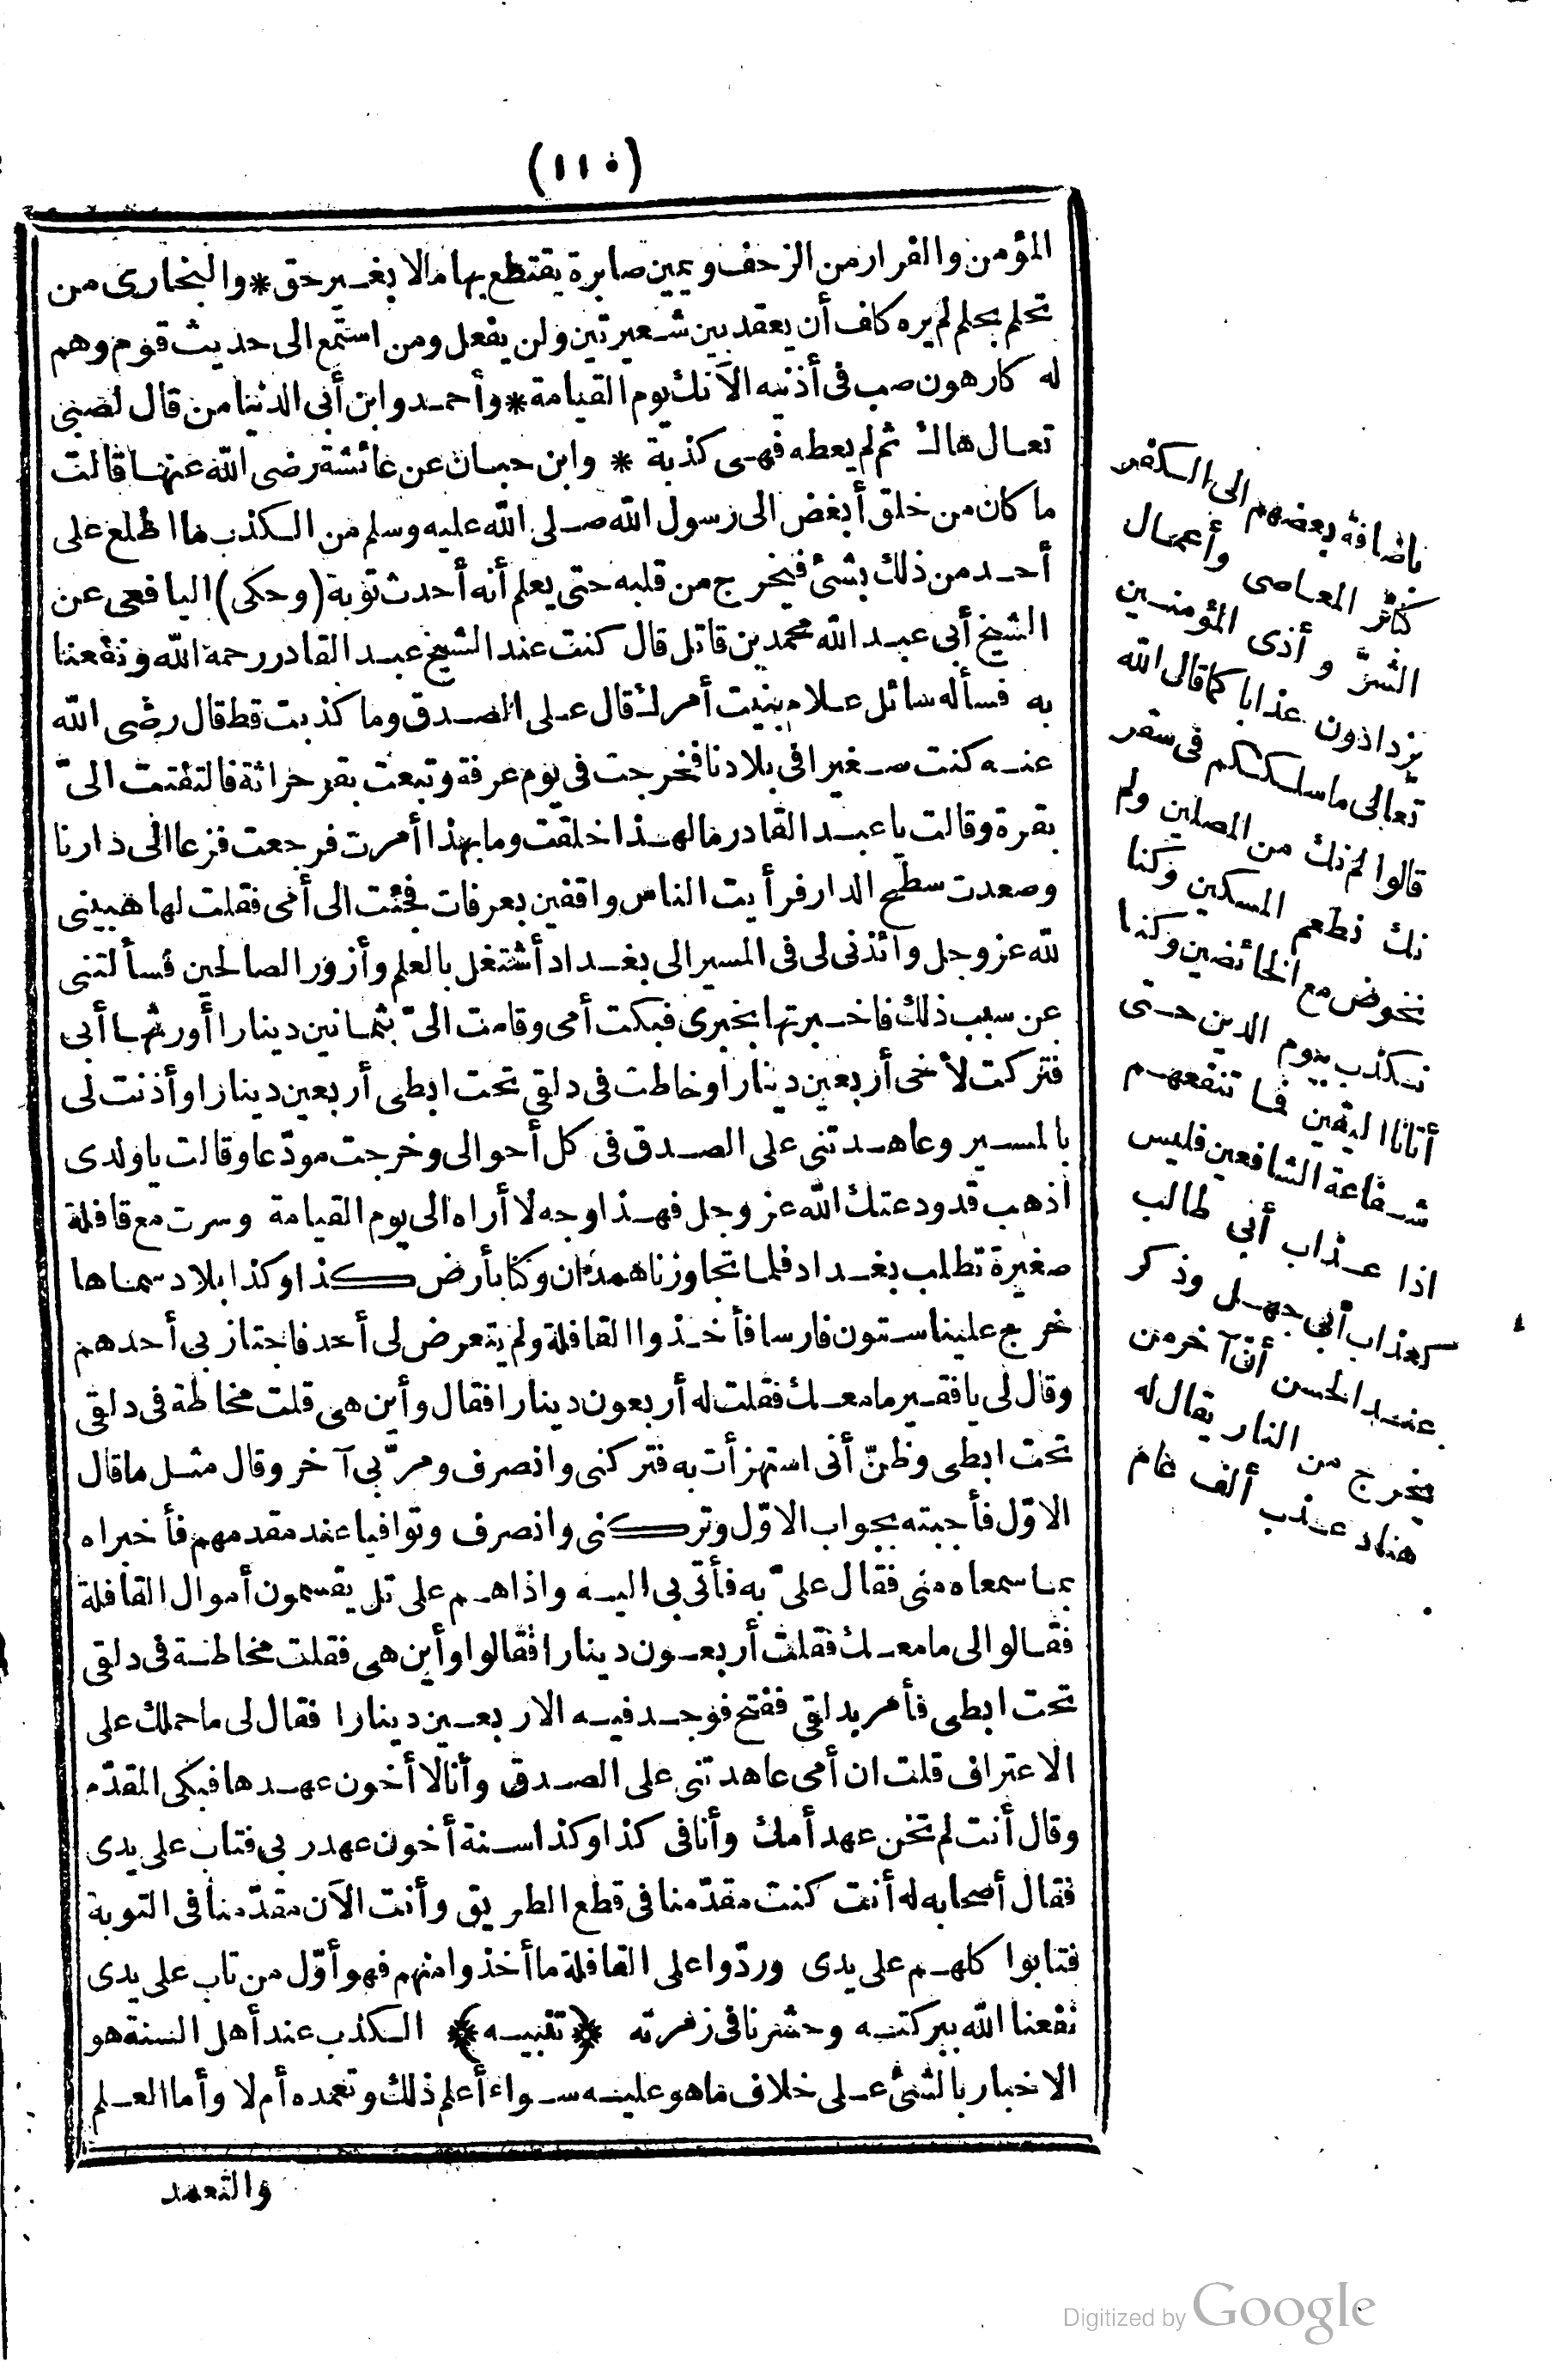 (١١٠)
المؤمن والفرار من الزحف ويمين صابرة يقتطع بها مالا بغير حق * والبخارى من
تحلم بحلم لم يره كلف أن يعقد بين شعيرتين ولن يفعل ومن استمع الى حديث قوم وهم
له كارهون صب فى أذنيه الآنك يوم القيامة * وأحمد وابن أبى الدنيا من قال لصبى
تعال هاك ثم لم يعطه فهى كذبة * وابن حبان عن عائشة رضى الله عنها قالت
ما كان من خلق أبغض الى رسول الله صلى الله عليه وسلم من الكذب ما اطلع على
أحد من ذلك بشئ فيخرج من قلبه حتى يعلم أنه أحدث توبة (وحكى) اليافعى عن
الشيخ أبى عبد الله محمد بن قاتل قال كنت عند الشيخ عبد القادر رحمه الله ونفعنا
به فسأله سائل علام بنيت أمرك قال على الصدق وما كذبت قط قال رضى الله
عنه كنت صغيرا فى بلادنا فخرجت فى يوم عرفة وتبعت بقر حراثة فالتفتت الىّ
بقرة وقالت يا عبد القادر ما لهذا خلقت وما بهذا أمرت فرجعت فزعا الى دارنا
وصعدت سطح الدار فرأيت الناس واقفين بعرفات فجئت الى أمى فقلت لها هبينى
لله عز وجل وائذنى لى فى المسير الى بغداد أشتغل بالعلم وأزور الصالحين فسألتنى
عن سبب ذلك فاخبرتها بخبرى فبكت أمى وقامت الىّ بثمانين دينارا أورثها أبى
فتركت لأخى أربعين دينارا وخاطت فى دلقى تحت ابطى أربعين دينارا وأذنت لى
بالمسير وعاهدتنى على الصدق فى كل أحوالى وخرجت مودّعا وقالت يا ولدى
اذهب قد ودعتك الله عز وجل فهذا وجه لا أراه الى يوم القيامة وسرت مع قافلة
صغيرة تطلب بغداد فلما تجاوزنا همذان وكنا بأرض كذا وكذا بلاد سماها
خرج علينا ستون فارسا فأخذوا القافلة ولم يتعرض لى أحد فاجتاز بى أحدهم
وقال لى يا فقير ما معك فقلت له أربعون دينارا فقال وأين هى قلت مخاطة فى دلقى
تحت ابطى وظنّ أنى استهزأت به فتركنى وانصرف ومرّ بى آخر وقال مثل ما قال
الاوّل فأجبته بجواب الاوّل وتركنى وانصرف وتوافيا عند مقدمهم فأخبراه
بما سمعاه منى فقال علىّ به فأتى بى اليه واذا هم على تل يقسمون أموال القافلة
فقالوا الى ما معك فقلت أربعون دينارا فقالوا وأين هى فقلت مخاطة فى دلقى
تحت ابطى فأمر بدلقى ففتح فوجد فيه الاربعين دينارا فقال لى ما حملك على
الاعتراف قلت ان أمى عاهدتنى على الصدق وأنا لا أخون عهدها فبكى المقدّم
وقال أنت لم تخن عهد أمك وأنا فى كذا وكذا سنة أخون عهد ربى فتاب على يدى
فقال أصحابه له أنت كنت مقدّمنا فى قطع الطريق وأنت الآن مقدّمنا فى التوبة
فتابوا كلهم على يدى وردّوا على القافلة ما أخذوا منهم فهو أوّل من تاب على يدى
نفعنا الله ببركته وحشرنا فى زمرته ﴿تنبيه﴾ الكذب عند أهل السنة هو
الاخبار بالشئ على خلاف ما هو عليه سواء أعلم ذلك وتعمده أم لا وأما العلم
والتعمد
باضافة بعضهم الى الكفر
كبائر المعاصى وأعمال
الشرّ وأذى المؤمنين
يزدادون عذابا كما قال الله
تعالى ما سلككم فى سقر
قالوا لم نك من المصلين ولم
نك نطعم المسكين وكنا
نخوض مع الخائضين وكنا
نكذب بيوم الدين حتى
أتانا اليقين فما تنفعهم
شفاعة الشافعين فليس
اذا عذاب أبى طالب
كعذاب أبى جهل وذكر
عند الحسن أن آخر من
يخرج من النار يقال له
هناد عذب ألف عام
Digitized by Google